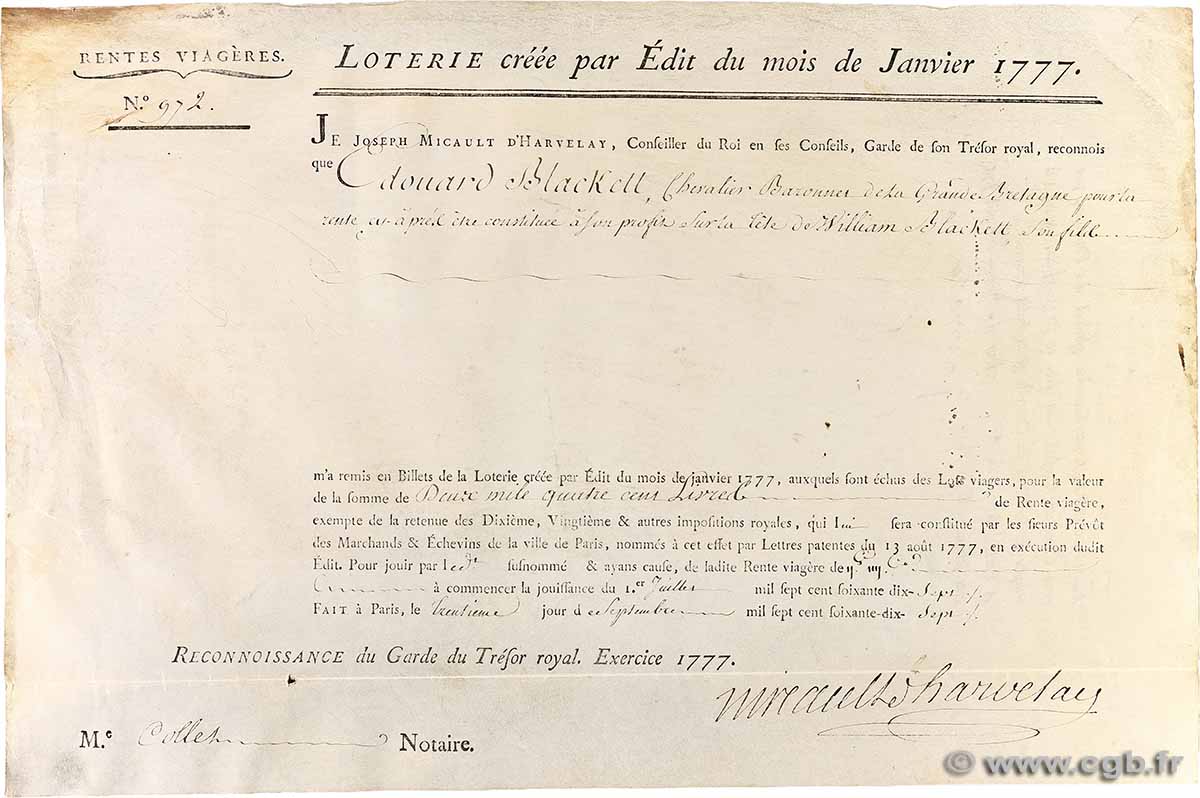 RENTES VIAGÈRES.
N.° 972.
LOTERIE créée par Édit du mois de Janvier 1777.
JE JOSEPH MICAULT D'HARVELAY, Conseiller du Roi en ses Conseils, Garde de son Trésor royal, reconnois
que Edouard Blackett, Chevalier Baronnet de la Grande Bretagne pour la
rente cy après être constituée à son profit sur la tête de William Blackett, son fils
m'a remis en Billets de la Loterie créée par Édit du mois de janvier 1777, auxquels sont échus des Lots viagers, pour la valeur
de la somme de Deux mile quatre cent Livres de Rente viagère,
exempte de la retenue des Dixième, Vingtième & autres impositions royales, qui lui sera constitué par les sieurs Prévôt
des Marchands & Échevins de la ville de Paris, nommés à cet effet par Lettres patentes du 13 août 1777, en exécution dudit
Édit. Pour jouir par led.t susnommé & ayans cause, de ladite Rente viagère de
à commencer la jouissance du 1.er Juillet mil sept cent soixante dix-Sept
FAIT à Paris, le trentieme jour de Septembre mil sept cent soixante-dix-Sept
RECONNOISSANCE du Garde du Trésor royal. Exercice 1777.
Micault d'harvelay
M.e Collet Notaire.
© www.cgb.fr